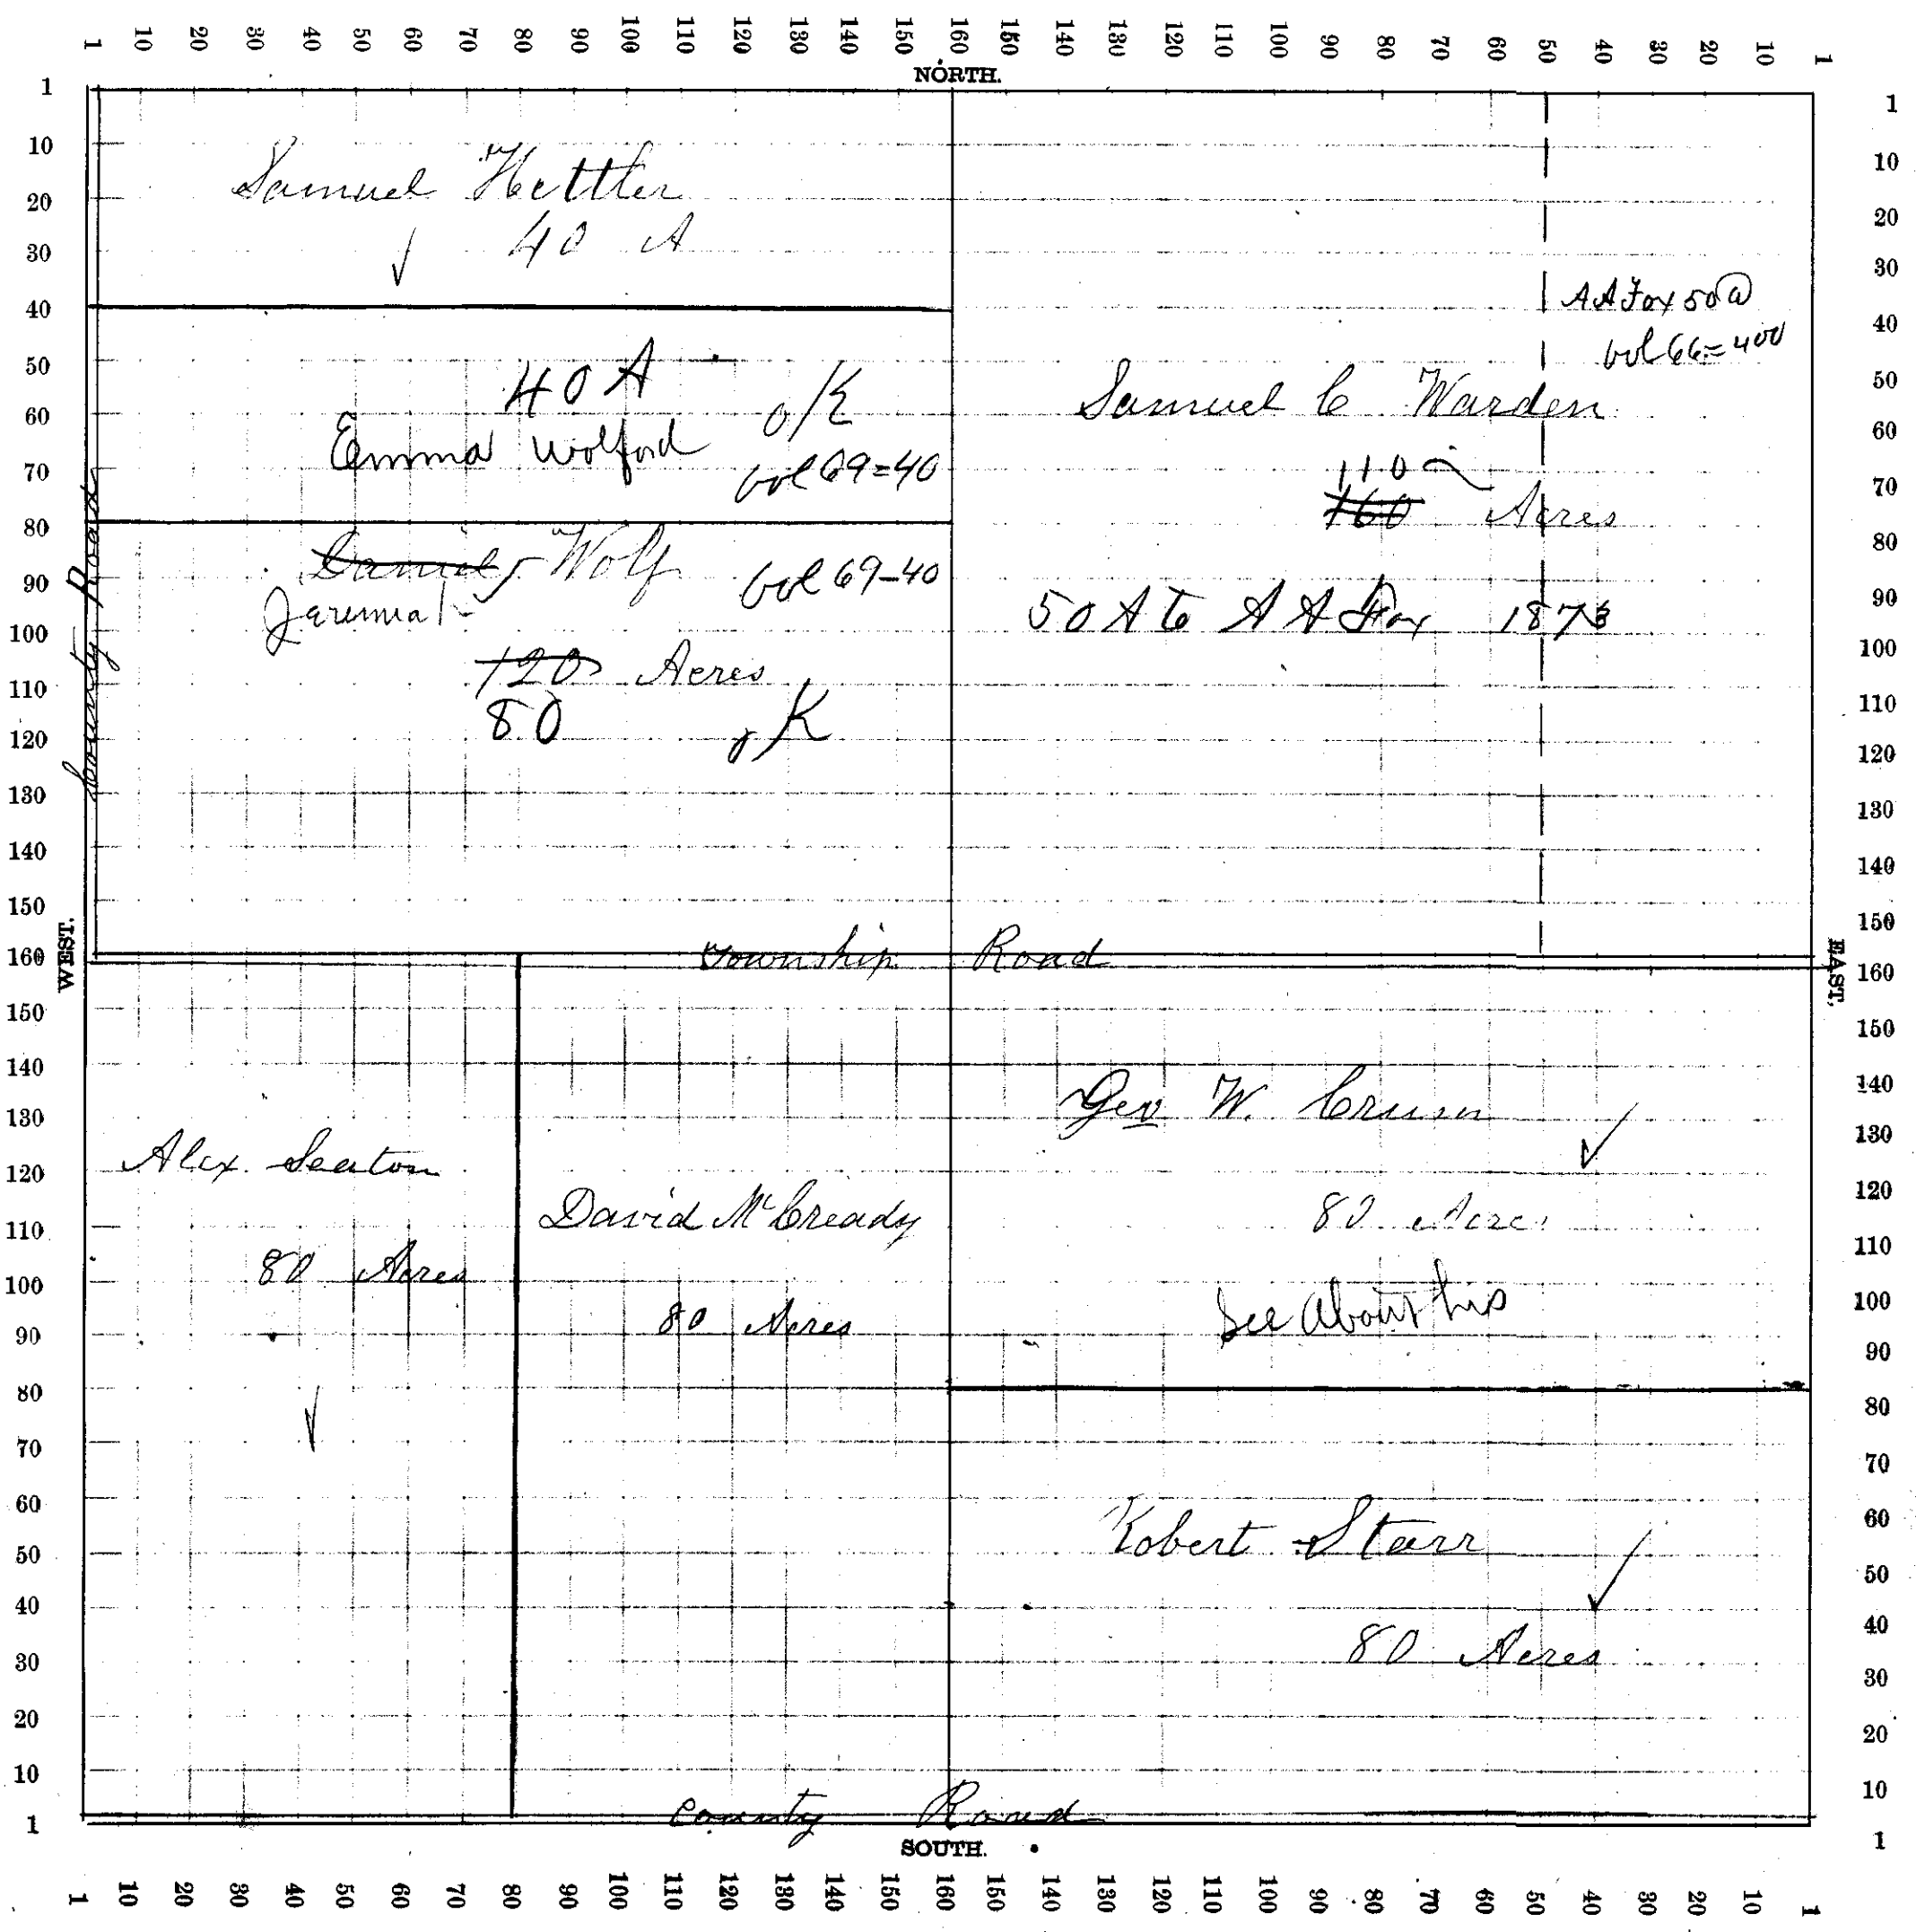 1 10 20 30 40 50 60 70 80 90 100 110 120 130 140 150 160 150 140 130 120 110 100 90 80 70 60 50 40 30 20 10 1
NORTH.
1 10 20 30 40 50 60 70 80 90 100 110 120 130 140 150 160 150 140 130 120 110 100 90 80 70 60 50 40 30 20 10 1
WEST.
County Road
Samuel Hettler
40 A
40 A
Emma Wolford
o/K
vol 69=40
Daniel Wolf
vol 69-40
Jeremiah
120 Acres
80
o K
A A Fox 50 a
vol 66=400
Samuel C Warden
110
160 Acres
50 A to A A Fox 1873
Township Road
Alex. Seaton
80 Acres
David McCready
80 Acres
Geo W. Crum
80 Acres
See About this
Robert Starr
80 Acres
County Road
1 10 20 30 40 50 60 70 80 90 100 110 120 130 140 150 160 150 140 130 120 110 100 90 80 70 60 50 40 30 20 10 1
EAST.
SOUTH.
1 10 20 30 40 50 60 70 80 90 100 110 120 130 140 150 160 150 140 130 120 110 100 90 80 70 60 50 40 30 20 10 1